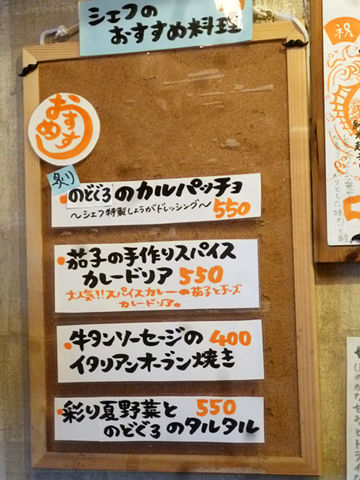 シェフの
おすすめ料理
おすすめ
炙り
のどぐろのカルパッチョ
～シェフ特製しょうがドレッシング～ 550
茄子の手作りスパイス
カレードリア 550
大人気!!スパイスカレーの茄子とチーズ
カレードリア。
牛タンソーセージの 400
イタリアンオーブン焼き
彩り夏野菜と 550
のどぐろのタルタル
祝